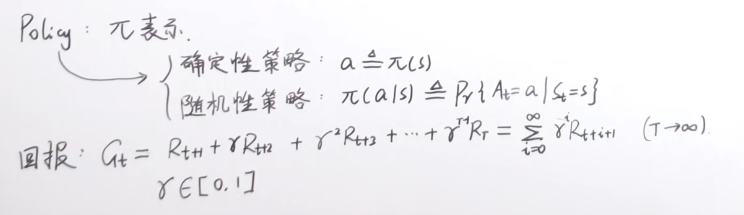 Policy: π表示.
确定性策略: a ≜ π(s)
随机性策略: π(a|s) ≜ Pr{At=a|St=s}
回报: Gt = Rt+1 + γRt+2 + γ²Rt+3 + ⋯ + γ^{T-1}RT = ∑_{i=0}^{∞} γ^i Rt+i+1 (T→∞).
γ∈[0,1]